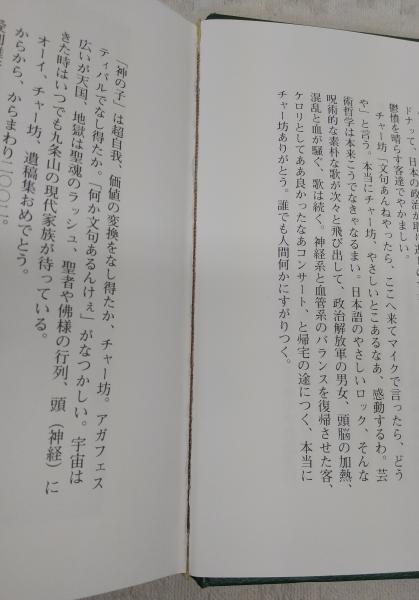 ドナッて、日本の政治が取り
鬱憤を晴らす客達でやかましい。
チャー坊「文句あんねやったら、ここへ来てマイクで言ったら、どう
や」と言う。本当にチャー坊、やさしいとこあるなあ、感動するわ。芸
術哲学は本来こうでなきゃなるまい。日本語のやさしいロック、そんな
呪術的な素朴な歌が次々と飛び出して、政治解放軍の男女、頭脳の加熱、
混乱と血が騒ぐ、歌は続く。神経系と血管系のバランスを復帰させた客、
ケロリとしてああ良かったなあコンサート、と帰宅の途につく、本当に
チャー坊ありがとう。誰でも人間何かにすがりつく。
「神の子」は超自我、価値の変換をなし得たか、チャー坊。アガフェス
ティバルでなし得たか。「何か文句あるんけぇ」がなつかしい。宇宙は
広いが天国、地獄は聖魂のラッシュ、聖者や佛様の行列、頭（神経）に
きた時はいつでも九条山の現代家族が待っている。
オーイ、チャー坊、遺稿集おめでとう。
からから、からまわり二〇〇二。